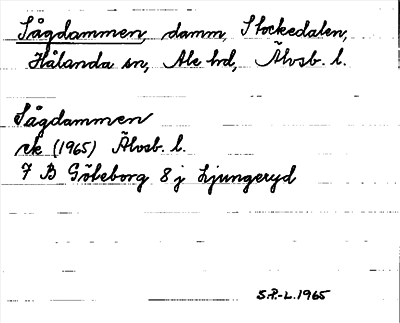 Sågdammen, damm, Stockedalen,
Hålanda sn, Ale hd, Älvsb. l.
Sågdammen
ek (1965) Älvsb. l.
7 B Göteborg 8 j Ljungeryd
S.P.-L. 1965